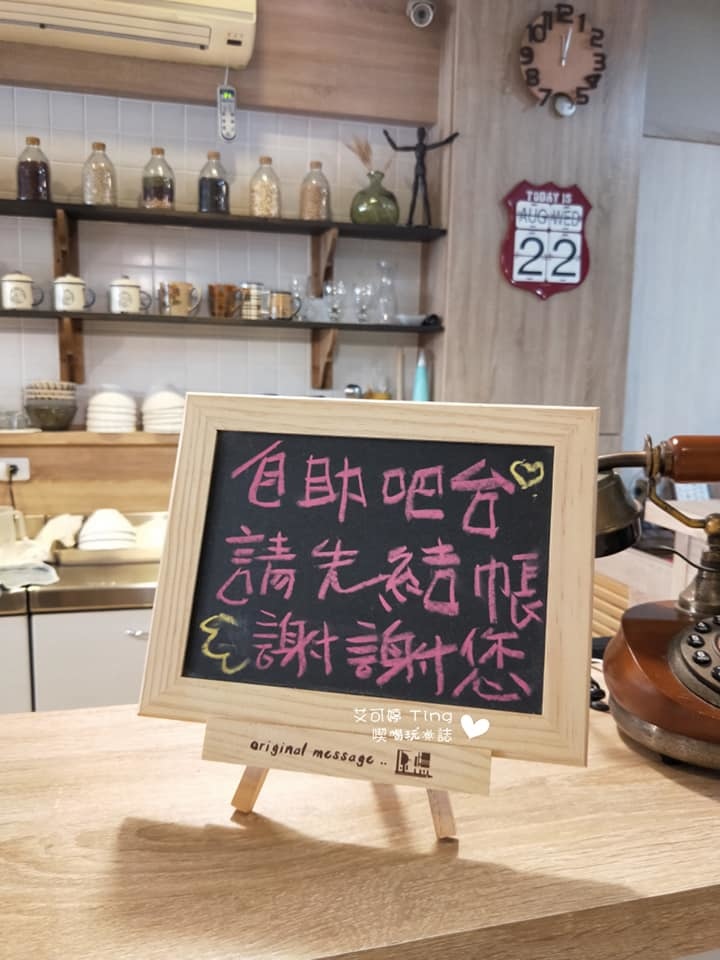 10 11 12 1 2 3 4 5 7 8 9
TODAY IS
AUG WED
22
自助吧台
請先結帳
謝謝您
艾可婷 Ting
喫喝玩樂誌
original message ..